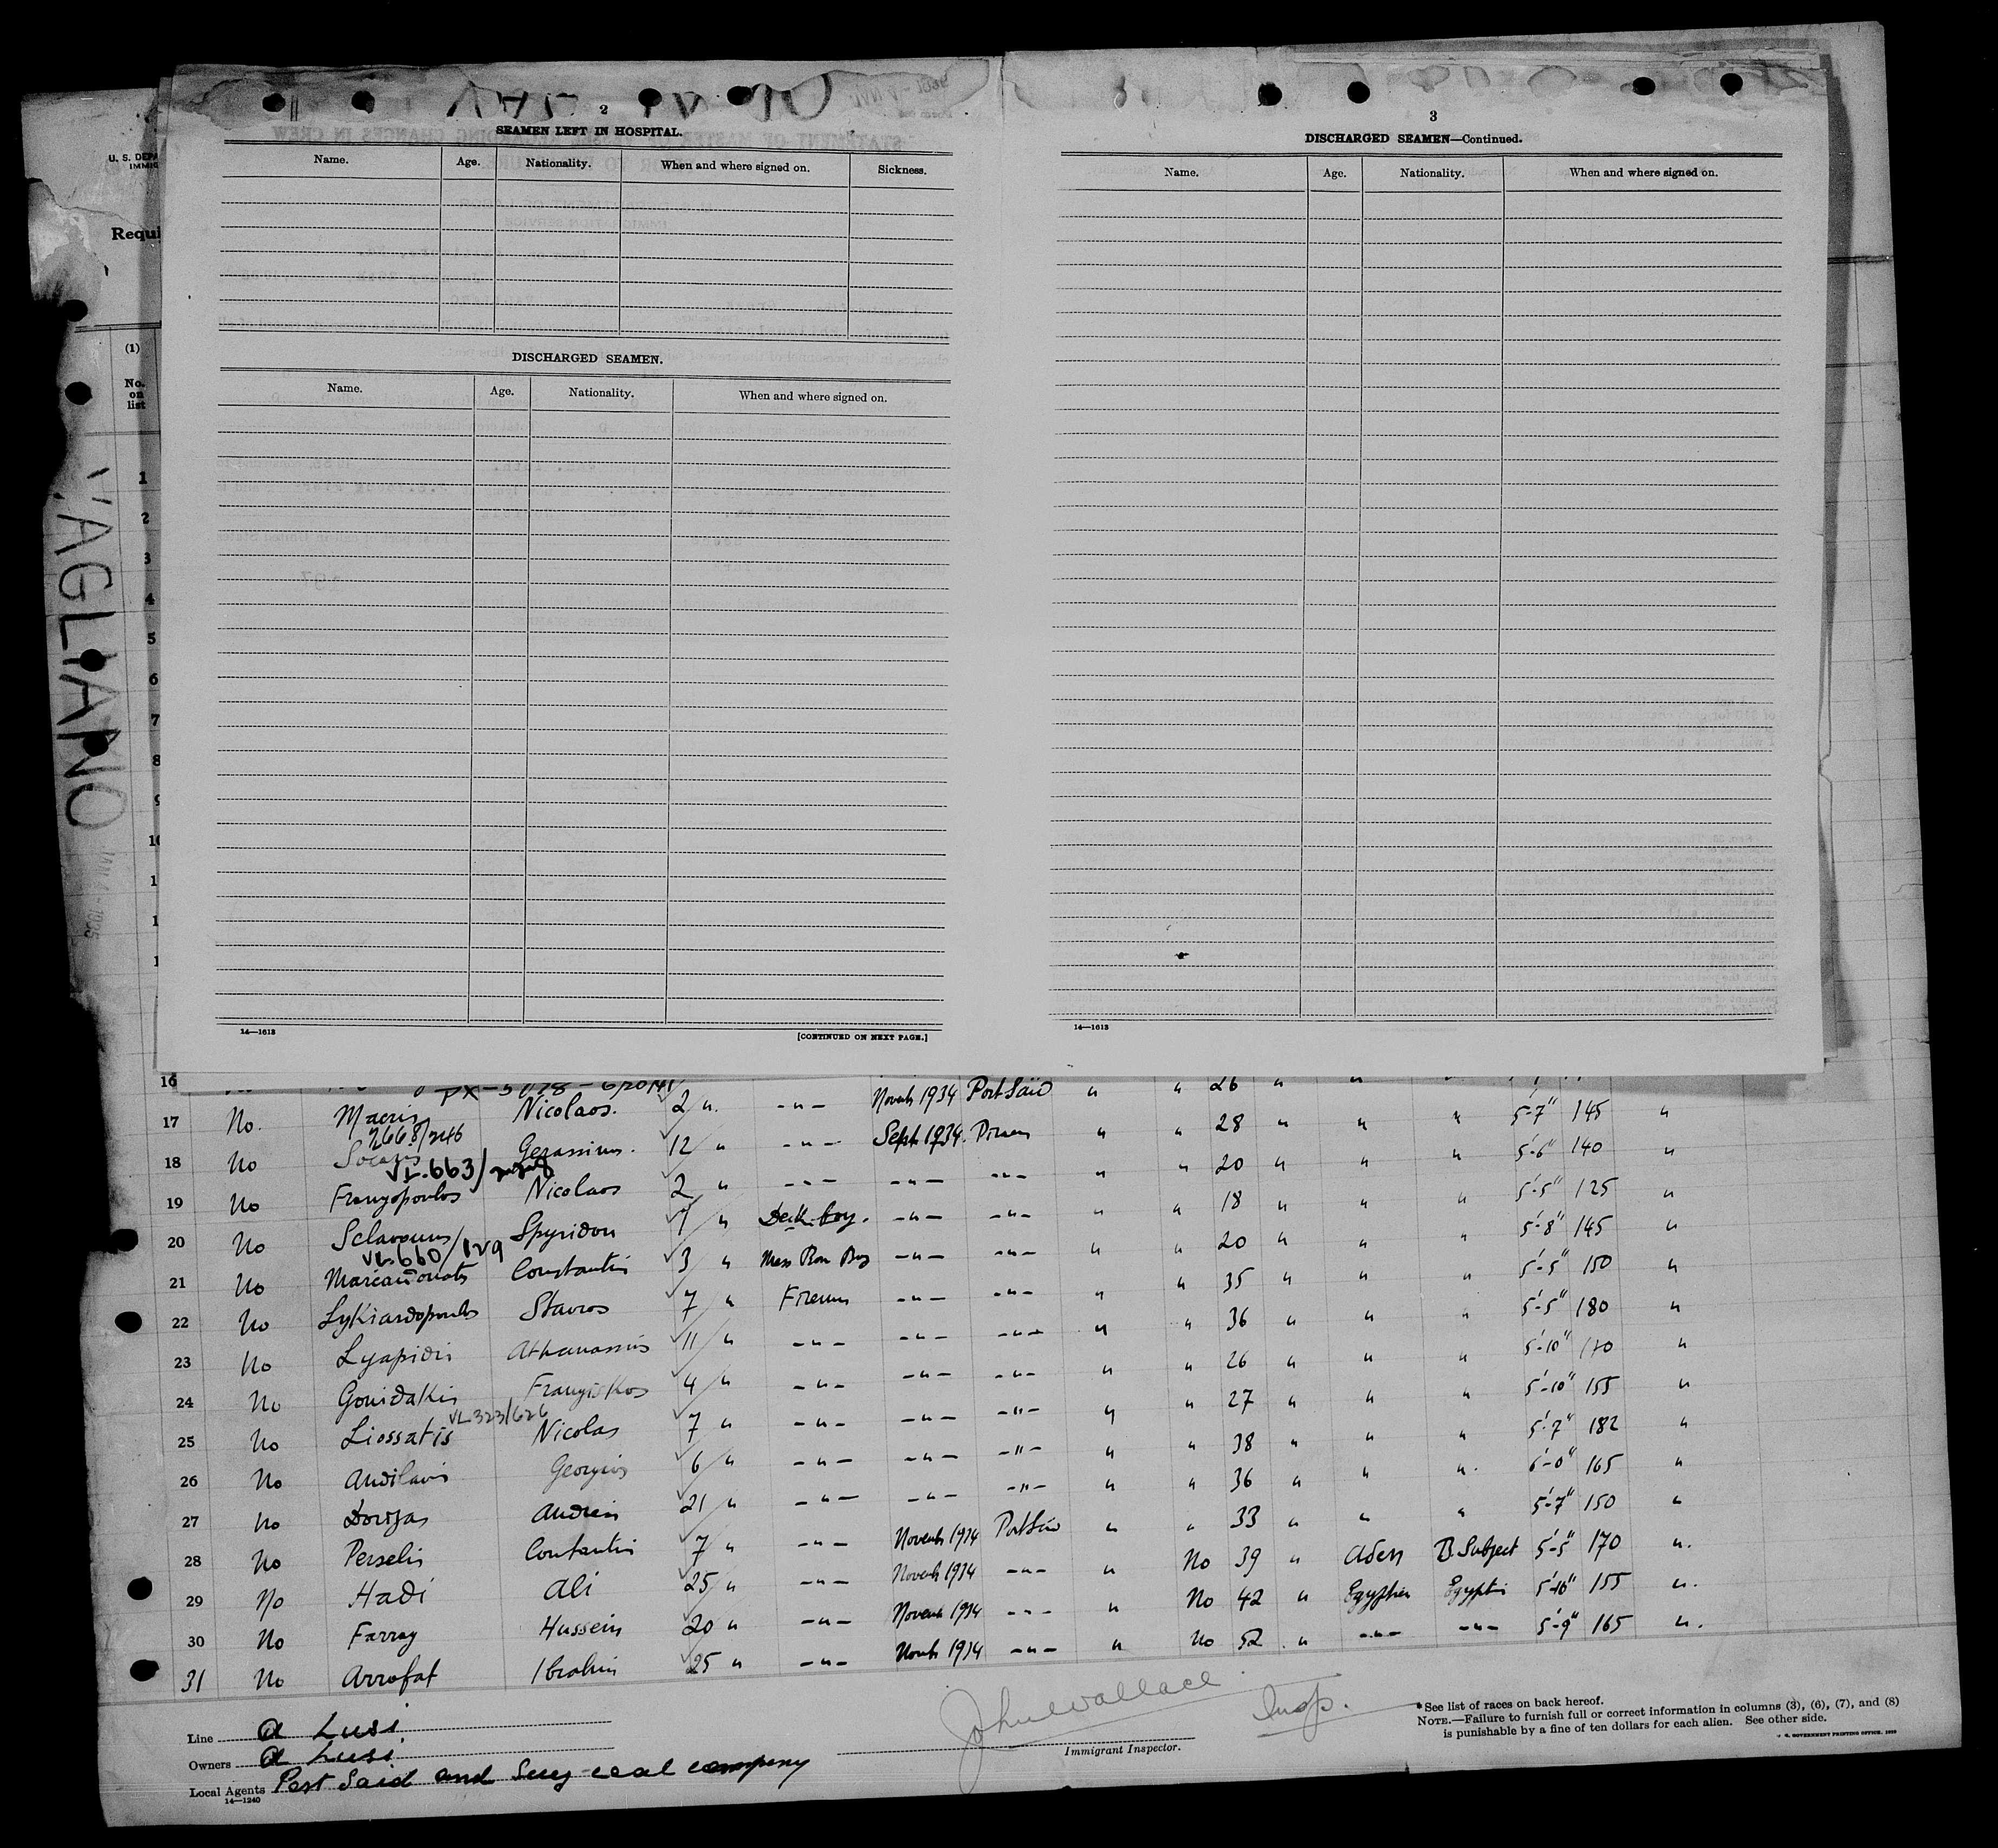 2
SEAMEN LEFT IN HOSPITAL.
Name. Age. Nationality. When and where signed on. Sickness.
DISCHARGED SEAMEN.
Name. Age. Nationality. When and where signed on.
14—1613 [CONTINUED ON NEXT PAGE.]
3
DISCHARGED SEAMEN—Continued.
Name. Age. Nationality. When and where signed on.
14—1613
U. S. DEPA
IMMIG
Requi
(1)
No.
on
list
VAGLIANO
1
2
3
4
5
6
7
8
16 26 "
17 No. Macris Nicolaos. 2 " -"- Novemb 1934 Port Said " " 28 " " " 5-7" 145 "
2668/246
18 No Gerassimos. 12 " -"- Sept. 1934. " " 20 " " " 5'-6" 140 "
VL.663/
19 No Frangopoulos Nicolaos 2 " -"- -"- -"- " " 18 " " " 5'-5" 125 "
20 No Sclavounos Spyridon 7 " Deck boy. -"- -"- " " 20 " " " 5'-8" 145 "
VL.660/129
21 No Constantin 3 " Mess Rom Boy -"- -"- " " 35 " " " 5'-5" 150 "
22 No Lykiardopoulos Stavros 7 " Firemn -"- -"- " " 36 " " " 5'-5" 180 "
23 No Lyapidis Athanassius 11 " -"- -"- -"- " " 26 " " " 5'-10" 170 "
24 No Gonidakis Frangiskos 4 " -"- -"- -"- " " 27 " " " 5'-10" 155 "
VL323/626
25 No Liossatis Nicolas 7 " -"- -"- -"- " " 38 " " " 5'-7" 182 "
26 No Georgios 6 " -"- -"- -"- " " 36 " " " 6'-0" 165 "
27 No Andreas 21 " -"- -"- -"- " " 33 " " " 5'-7" 150 "
28 No Perselis Constantin 7 " -"- Novemb 1934 Port Said " No 39 " Aden B. Subject 5'-5" 170 ".
29 No Hadi Ali 25 " -"- Novemb 1934 -"- " No 42 " Egyptian Egyptin 5'-10" 155 ".
30 No Farrag Hussein 20 " -"- Novemb 1934 -"- " No 52 " -"- -"- 5'-9" 165 ".
31 No Arrofat Ibrahim 25 " -"- Novemb 1934 -"- "
Line A Lusi.
Owners A Lusi.
Local Agents Port Said and Suez coal company
14—1240
John Wallace Insp.
Immigrant Inspector.
*See list of races on back hereof.
NOTE.—Failure to furnish full or correct information in columns (3), (6), (7), and (8)
is punishable by a fine of ten dollars for each alien. See other side.